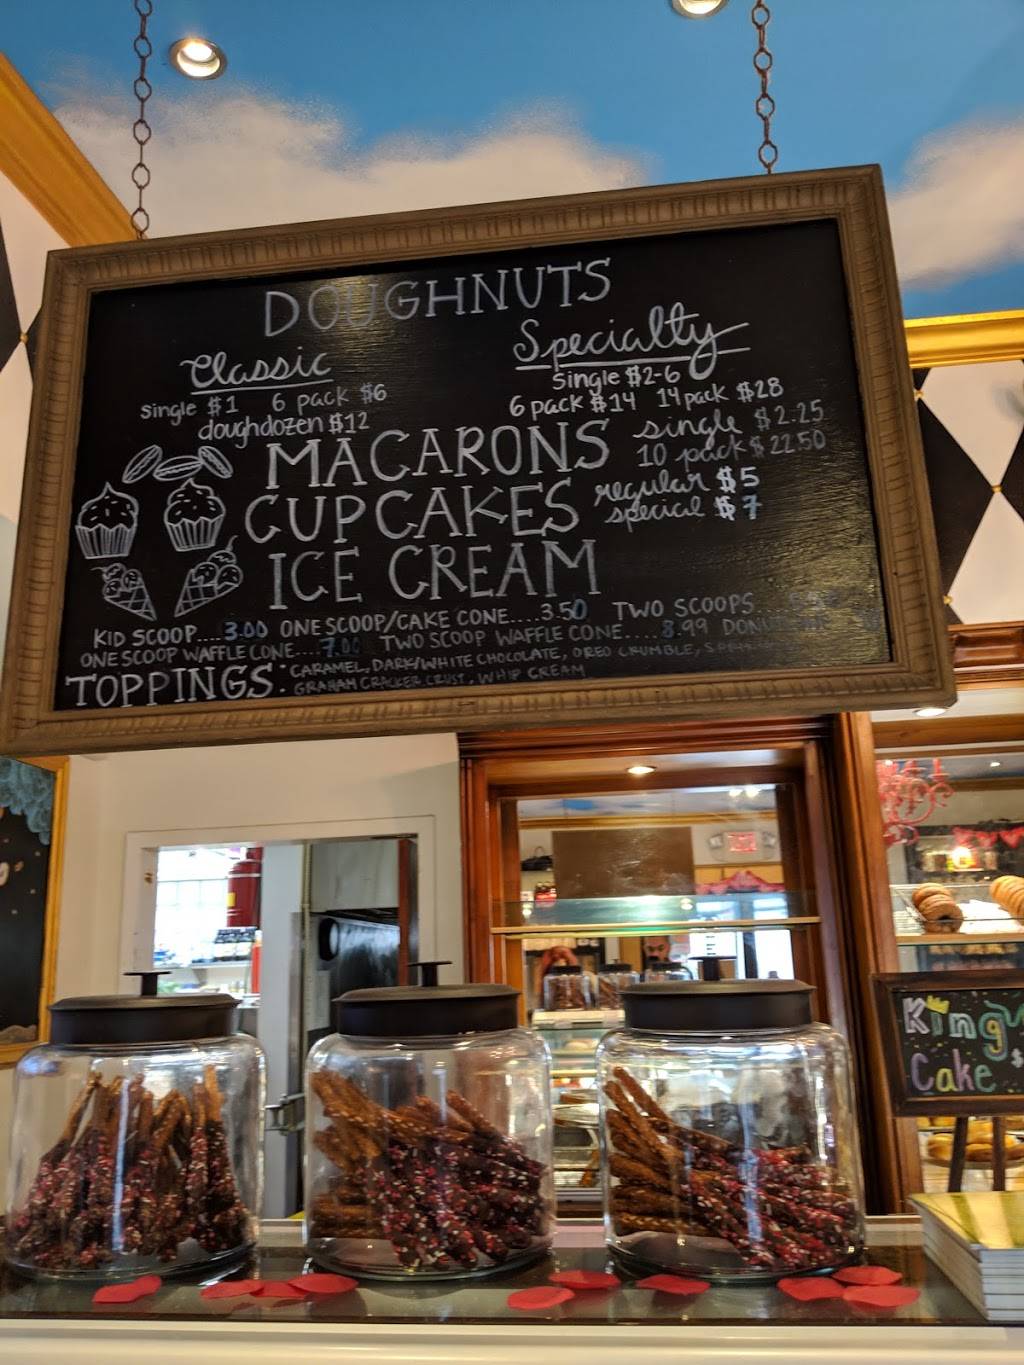 DOUGHNUTS
Classic
single $1 6 pack $6
doughdozen $12
Specialty
single $2-6
6 pack $14 14 pack $28
MACARONS single $2.25
10 pack $22.50
CUPCAKES regular $5
special $7
ICE CREAM
KID SCOOP....3.00 ONE SCOOP/CAKE CONE....3.50 TWO SCOOPS
ONE SCOOP WAFFLE CONE....7.00 TWO SCOOP WAFFLE CONE....8.99
TOPPINGS: CARAMEL, DARK/WHITE CHOCOLATE, OREO CRUMBLE,
GRAHAM CRACKER CRUST, WHIP CREAM
King
Cake $